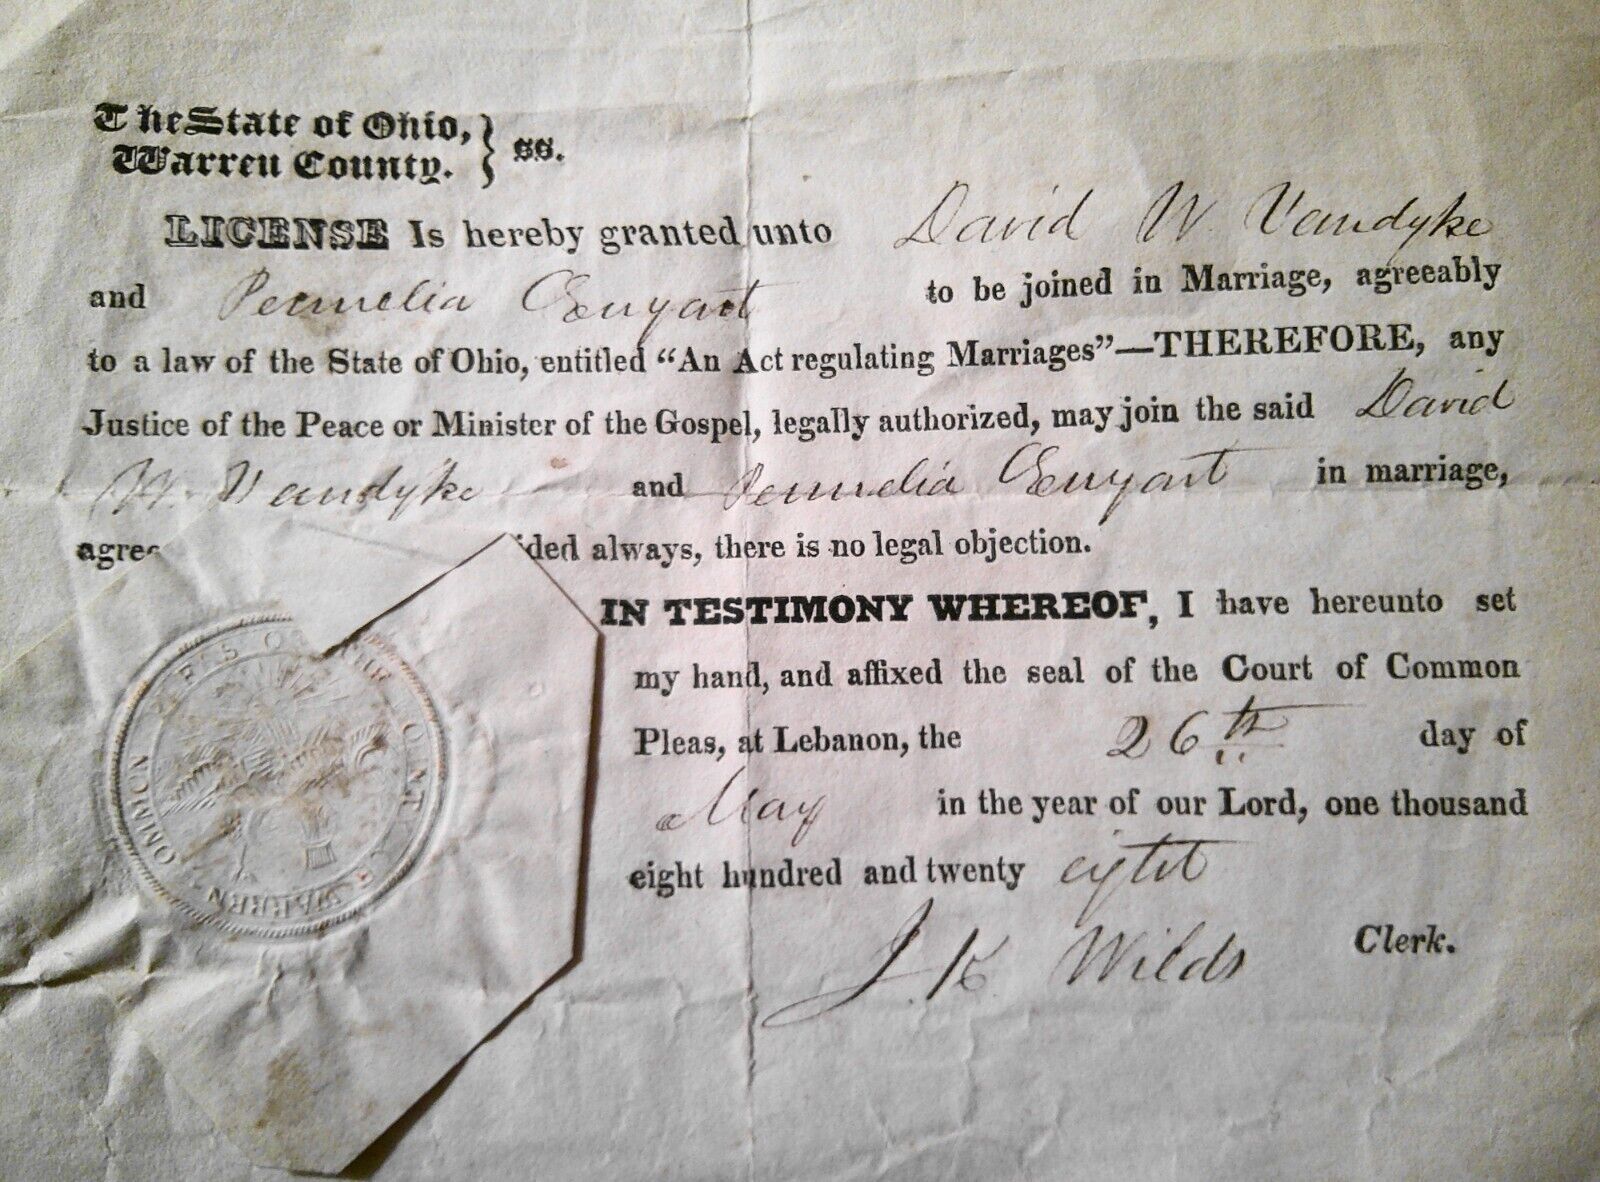 The State of Ohio,
Warren County. } ss.
LICENSE Is hereby granted unto David W. Vandyke
and Permelia Enyart to be joined in Marriage, agreeably
to a law of the State of Ohio, entitled "An Act regulating Marriages"—THEREFORE, any
Justice of the Peace or Minister of the Gospel, legally authorized, may join the said David
W. Vandyke and Permelia Enyart in marriage,
agree ided always, there is no legal objection.
IN TESTIMONY WHEREOF, I have hereunto set
my hand, and affixed the seal of the Court of Common
Pleas, at Lebanon, the 26th day of
May in the year of our Lord, one thousand
eight hundred and twenty eight
J. K. Wilds Clerk.
WARREN